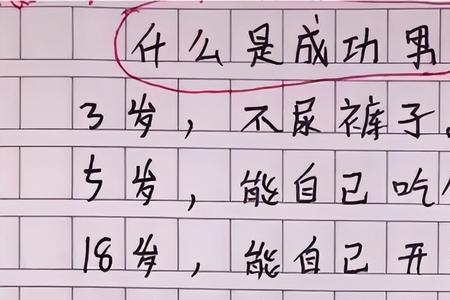 什么是成功男
3岁，不尿裤子。
5岁，能自己吃
18岁，能自己开